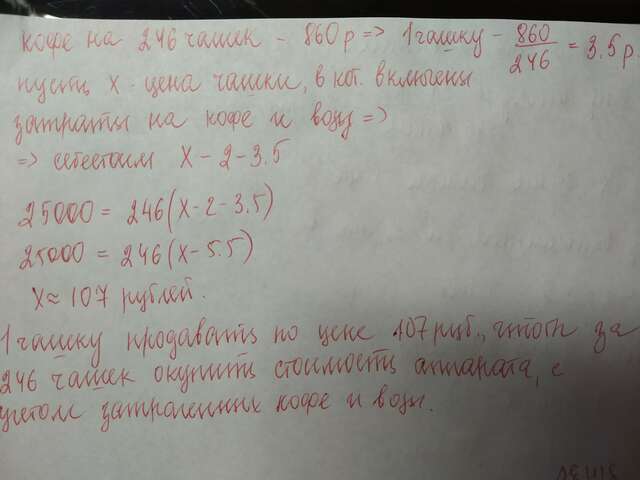 кофе на 246 чашек - 860 р => 1 чашку - 860/246 = 3.5 р.
пусть x - цена чашки, в кот. включены
затраты на кофе и воду =>
=> себестоим x - 2 - 3.5
25000 = 246(x-2-3.5)
25000 = 246(x-5.5)
x ≈ 107 рублей.
1 чашку продавать по цене 107 руб., чтобы за
246 чашек окупить стоимость аппарата, с
учетом затраченных кофе и воды.